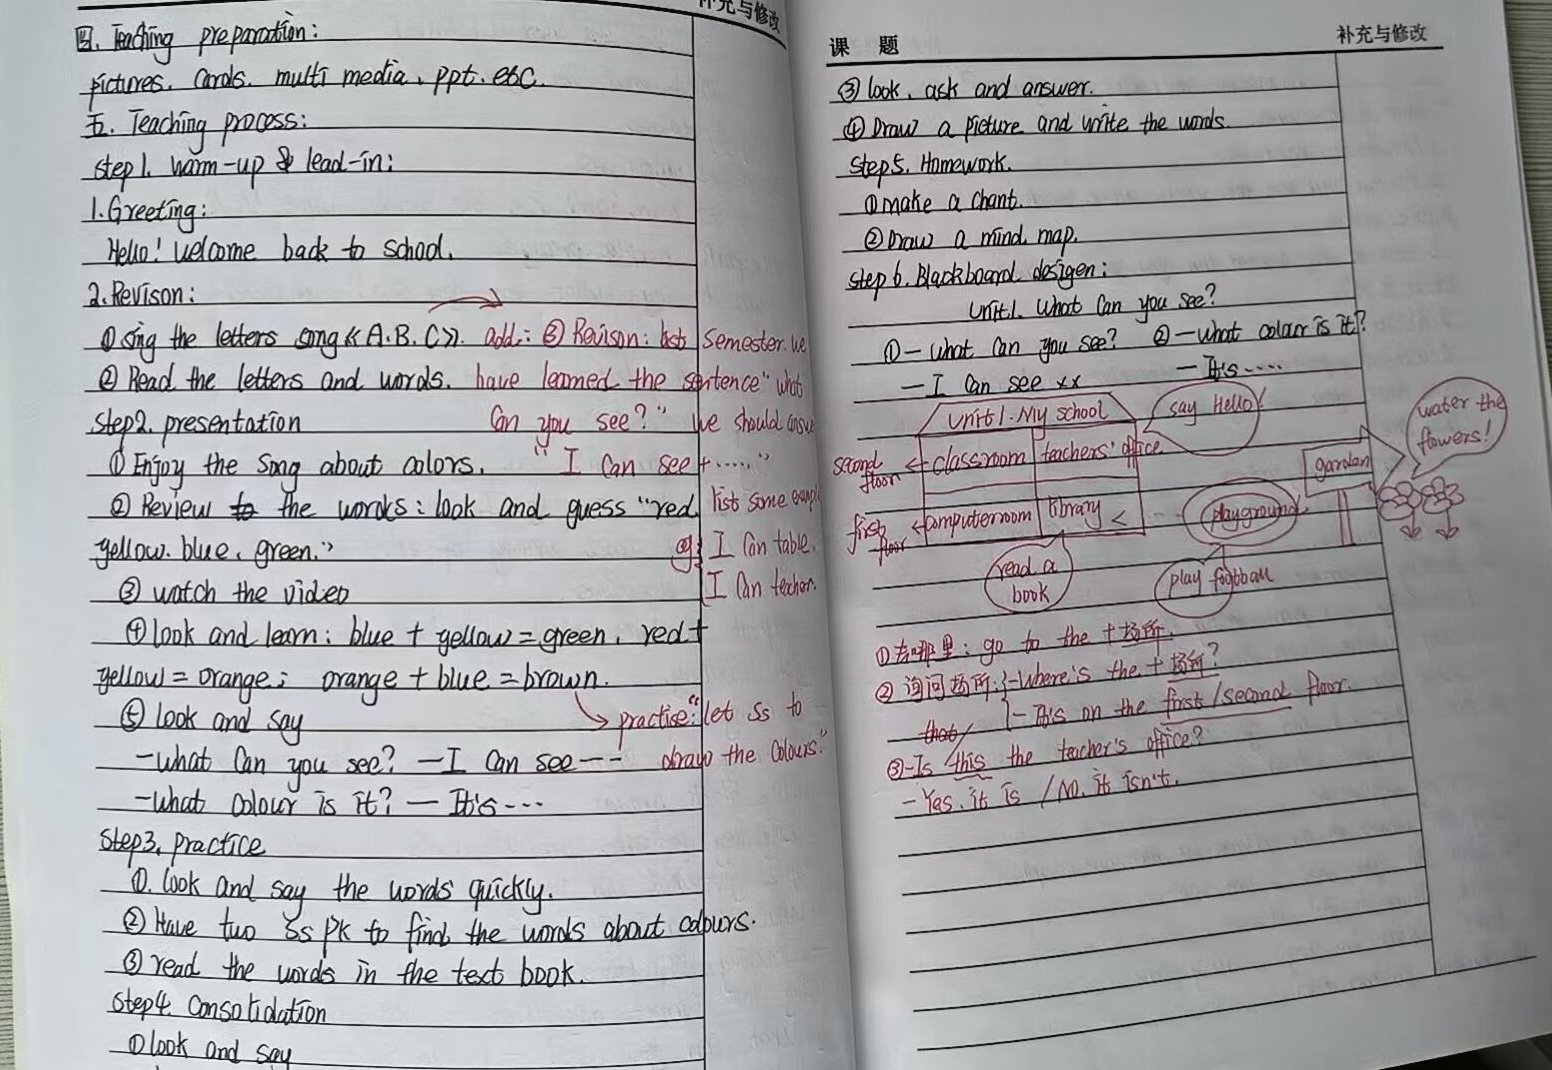 补充与修改
四. Teaching preparation:
pictures. Cards. multi media, ppt. etc.
五. Teaching process:
step1. warm-up & lead-in:
1. Greeting:
Hello! Welcome back to school.
2. Revison:
① sing the letters song 《A.B.C》. add: ③ Revison: last semester. we
② Read the letters and words. have learned the sentence "what
Step2. presentation can you see?" we should answ
① Enjoy the song about colors. "I can see +......"
② Review the words: look and guess "red list some examp
yellow. blue. green." eg: I can table.
③ watch the video I can teacher.
④ look and learn: blue + yellow = green, red +
yellow = orange; orange + blue = brown.
⑤ look and say practise: "let Ss to
-what can you see? — I can see --- draw the colours."
-what colour is it? — It's ...
Step3. practice
①. look and say the words quickly.
② Have two Ss PK to find the words about colours.
③ read the words in the text book.
Step4. Consolidation
① look and say
课 题
补充与修改
③ look, ask and answer.
④ Draw a picture and write the words.
Step5. Homework.
① make a chant.
② Draw a mind map.
Step 6. Blackboard desigen:
Unit1. What can you see?
① — what can you see? ② — what colour is it?
— I can see xx — It's ....
Unit1. My school
say Hello!
water the flowers!
second floor ← classroom teachers' office
garden
first floor ← computeroom library
playground
read a book
play football
① 去哪里: go to the + 场所.
② 询问场所: -Where's the + 场所?
- It's on the first/second floor.
that/
③ -Is this the teacher's office?
- Yes, it is / No, it isn't.